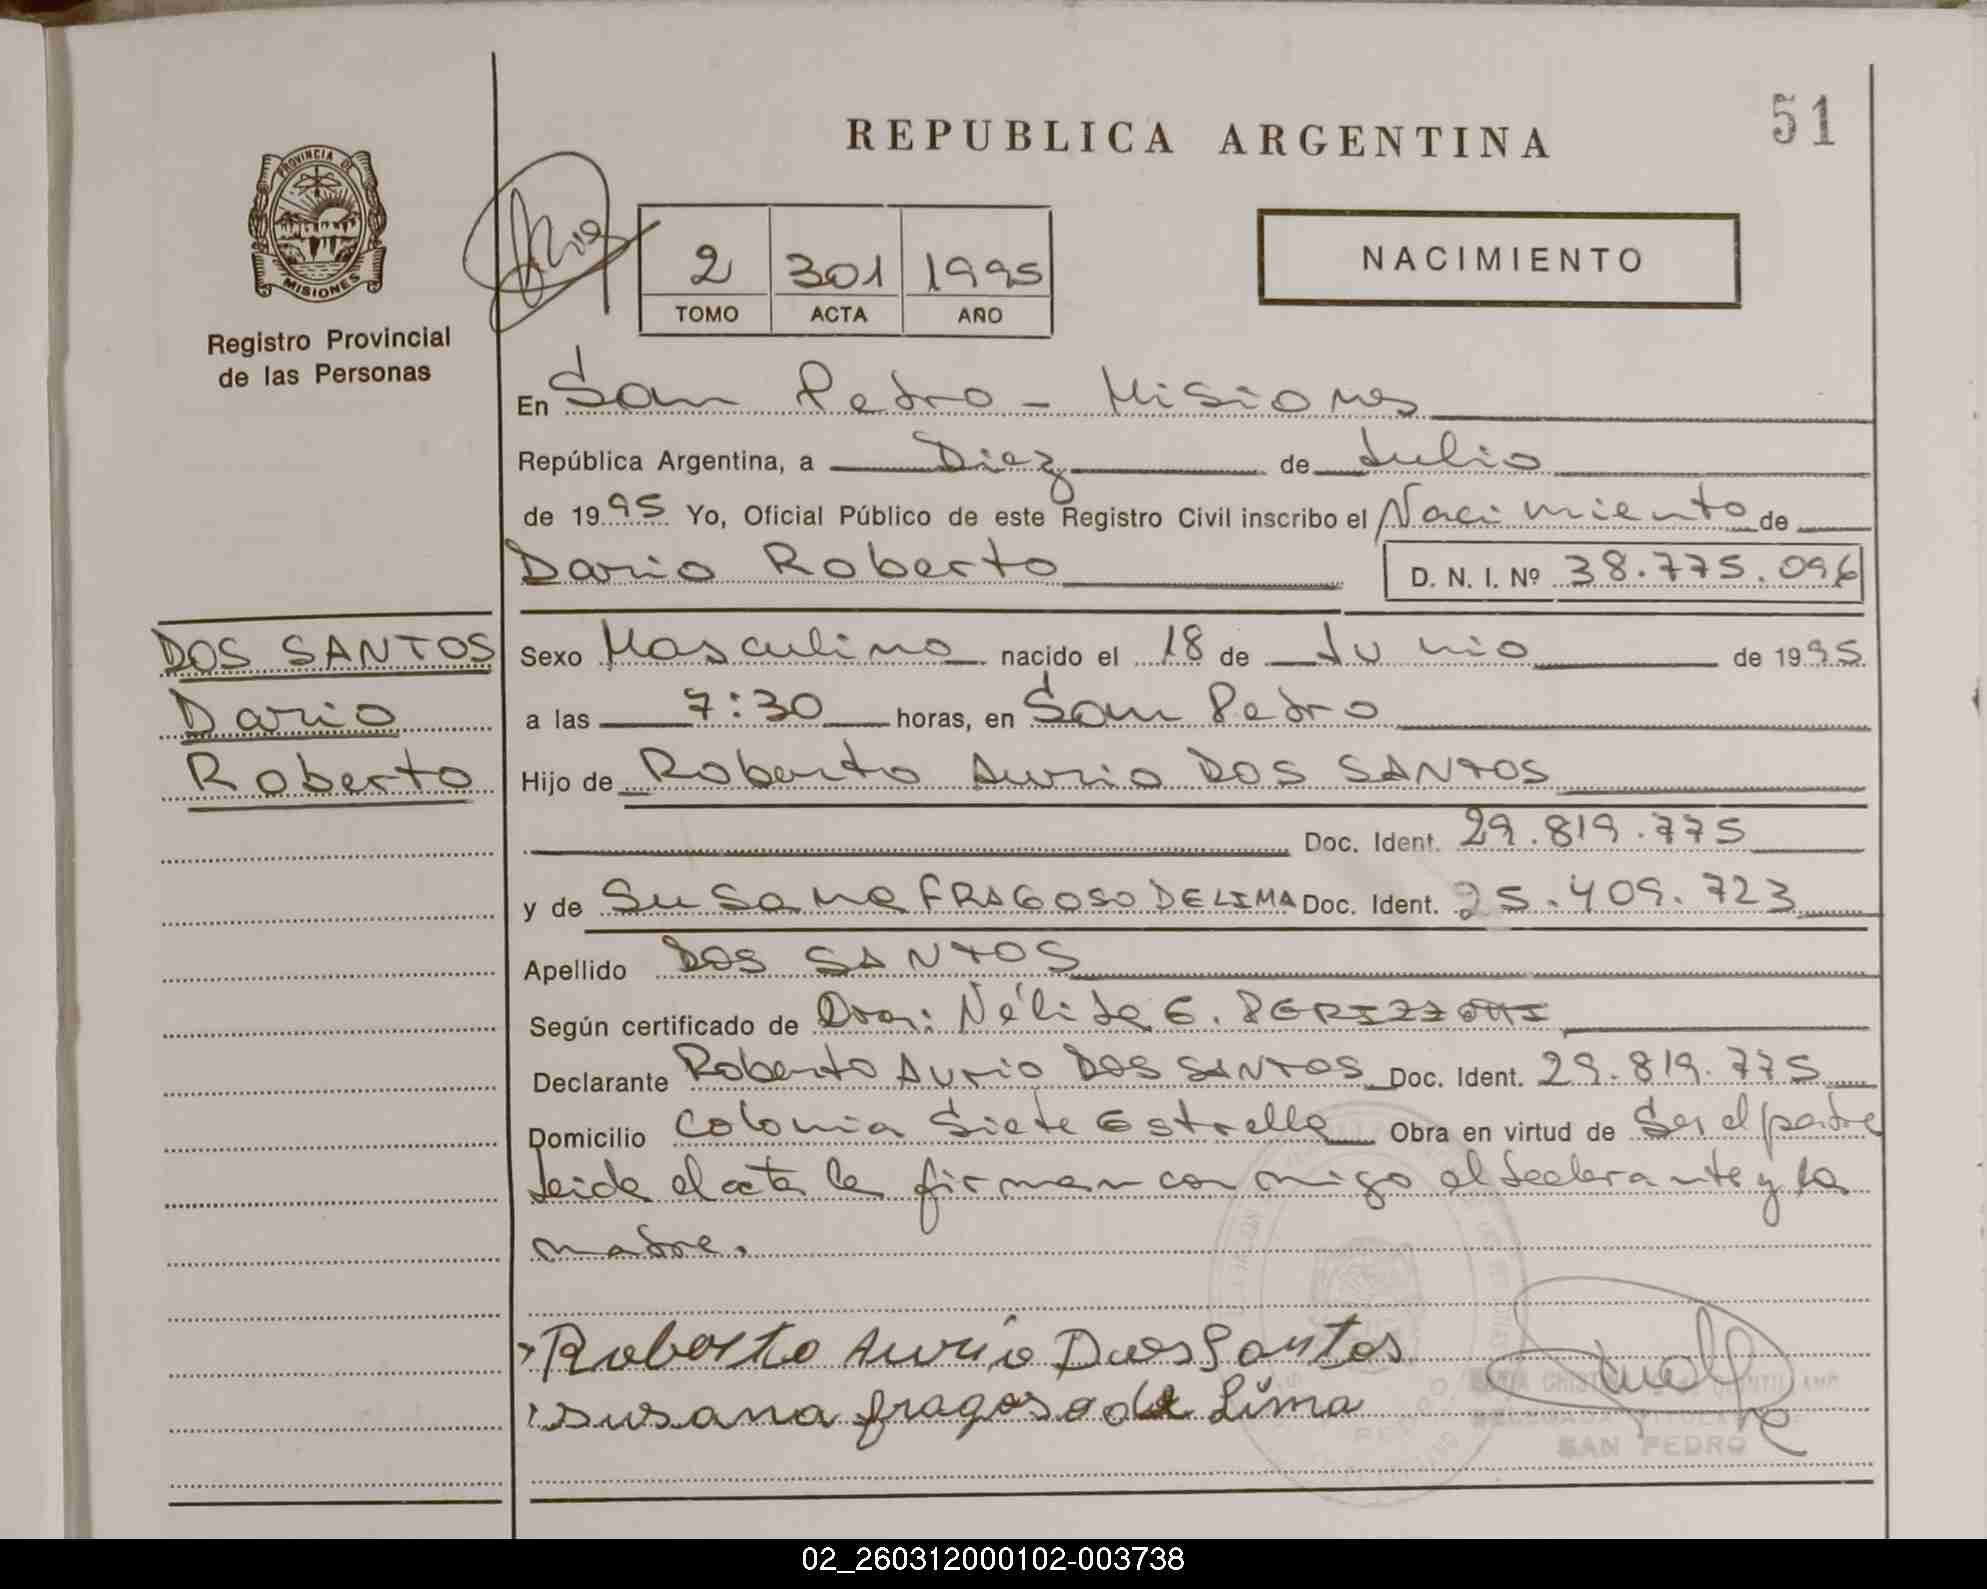 51
REPUBLICA ARGENTINA
PROVINCIA DE
MISIONES
NACIMIENTO
2 301 1995
TOMO ACTA AÑO
Registro Provincial
de las Personas
En San Pedro - Misiones
República Argentina, a Diez de Julio
de 1995 Yo, Oficial Público de este Registro Civil inscribo el Nacimiento de
Dario Roberto D. N. I. Nº 38.775.096
DOS SANTOS
Dario
Roberto
Sexo Masculino nacido el 18 de Junio de 1995
a las 7:30 horas, en San Pedro
Hijo de Roberto Aurio DOS SANTOS
Doc. Ident. 29.819.775
y de Susana FRAGOSO DE LIMA Doc. Ident. 25.409.723
Apellido DOS SANTOS
Según certificado de Dra: Nélida E.
Declarante Roberto Aurio DOS SANTOS Doc. Ident. 29.819.775
Domicilio Colonia Siete Estrella Obra en virtud de Ser el padre
Leida el acta la firman conmigo el declarante y la
madre.
Roberto Aurio Dos Santos
susana fragoso de Lima
SAN PEDRO
02_260312000102-003738